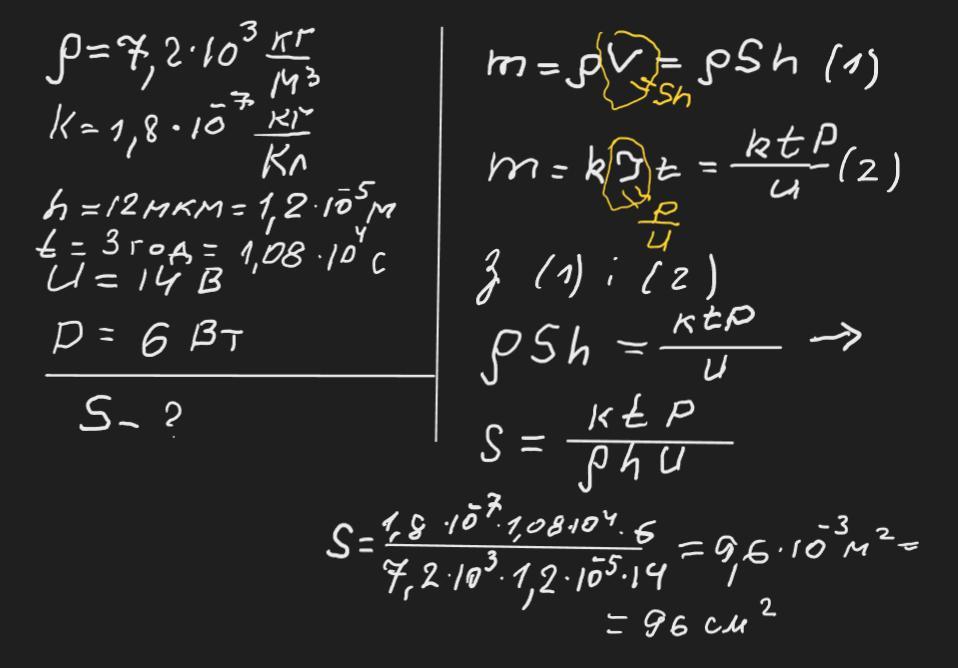 ρ = 7,2 · 10³ кг/м³
k = 1,8 · 10⁻⁷ кг/Кл
h = 12 мкм = 1,2 · 10⁻⁵ м
t = 3 год = 1,08 · 10⁴ с
U = 14 В
P = 6 Вт
S - ?
m = ρV = ρSh (1)
Sh
m = kIt = ktP/U (2)
P/U
З (1) і (2)
ρSh = ktP/U →
S = ktP/ρhU
S = 1,8 · 10⁻⁷ · 1,08 · 10⁴ · 6 / 7,2 · 10³ · 1,2 · 10⁻⁵ · 14 = 9,6 · 10⁻³ м² =
= 96 см²